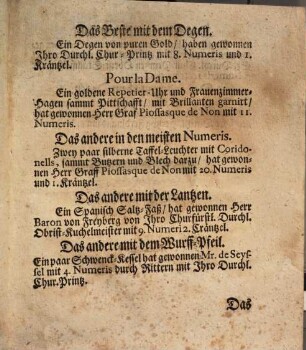 Das Beste mit dem Degen.
Ein Degen von puren Gold/ haben gewonnen
Ihro Durchl. Chur-Printz mit 8. Numeris und 1.
Kräntzel.
Pour la Dame.
Ein goldene Repetier-Uhr und Frauenzimmer-
Hagen sammt Pittschafft/ mit Brillanten garnirt/
hat gewonnen Herr Graf Piossasque de Non mit 11.
Numeris.
Das andere in den meisten Numeris.
Zwey paar silberne Taffel-Leuchter mit Corido-
nells, sammt Butzern und Blech darzu/ hat gewon-
nen Herr Graff Piossasque de Non mit 10. Numeris
und 1. Kräntzel.
Das andere mit der Lantzen.
Ein Spanisch Saltz-Faß/ hat gewonnen Herr
Baron von Freyberg von Ihro Churfürstl. Durchl.
Obrist-Kuchelmeister mit 9. Numeri 2. Cräntzel.
Das andere mit dem Wurff-Pfeil.
Ein paar Schwenck-Kessel hat gewonnen Mr. de Seys-
sel mit 4. Numeris durch Rittern mit Ihro Durchl.
Chur-Printz.
Das